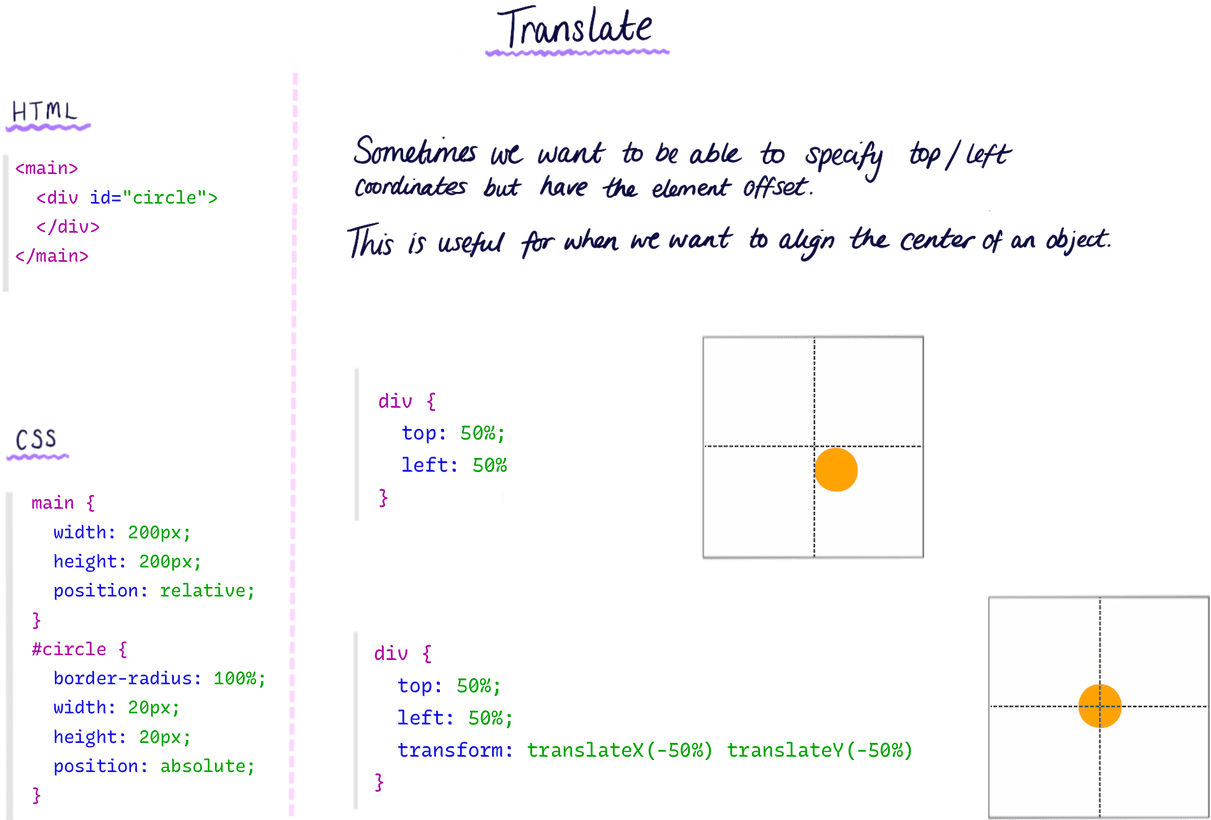 Translate
HTML
<main>
  <div id="circle">
  </div>
</main>
CSS
main {
  width: 200px;
  height: 200px;
  position: relative;
}
#circle {
  border-radius: 100%;
  width: 20px;
  height: 20px;
  position: absolute;
}
Sometimes we want to be able to specify top/left
coordinates but have the element offset.
This is useful for when we want to align the center of an object.
div {
  top: 50%;
  left: 50%
}
div {
  top: 50%;
  left: 50%;
  transform: translateX(-50%) translateY(-50%)
}